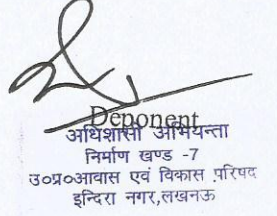 Deponent
अधिशासी अभियन्ता
निर्माण खण्ड -7
उ०प्र०आवास एवं विकास परिषद
इन्दिरा नगर,लखनऊ